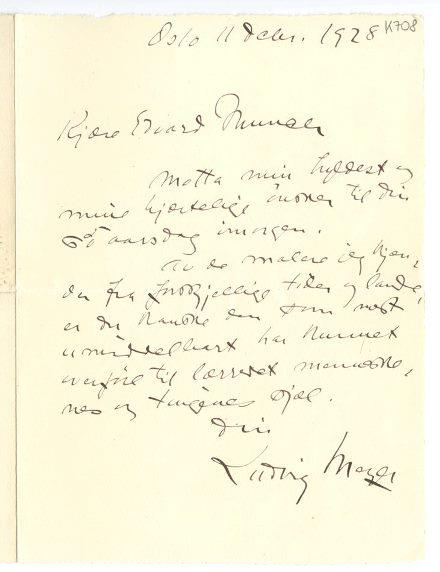 Oslo 11 Debr. 1928 K708
Kjære Edvard Munch
Motta min hyldest og
mine hjertelige önsker til din
65 aarsdag imorgen.
Av de malere jeg kjen-
der fra forskjellige tider og lande,
er du kanske den som mest
umiddelbart har kunnet
overföre til lærredet menneske-
nes og tingenes sjæl.
Din
Ludvig Meyer